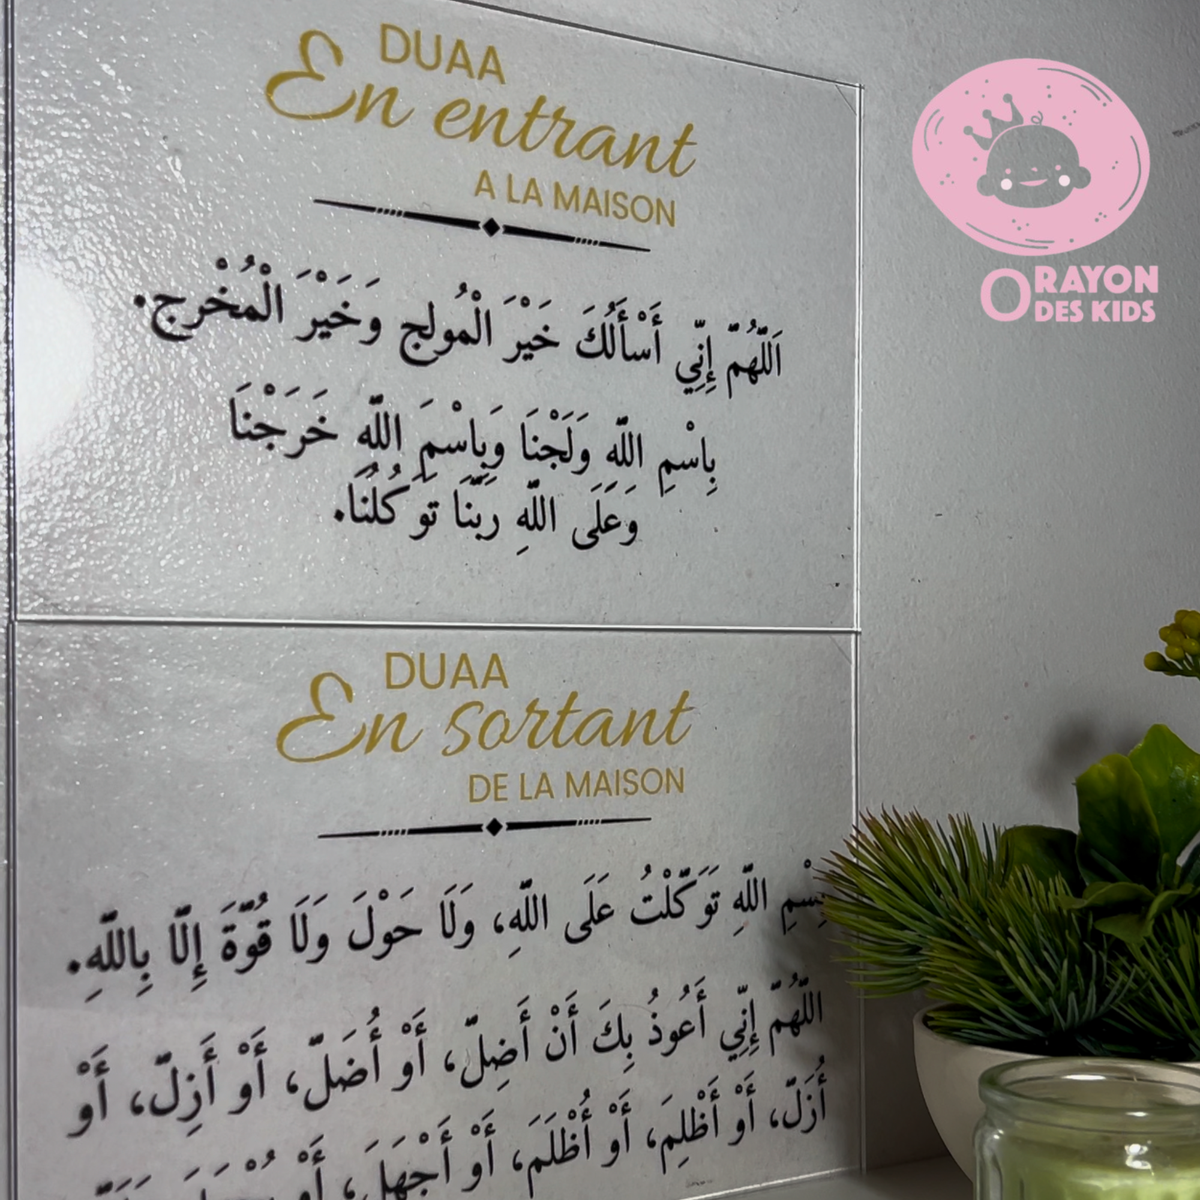 DUAA
En entrant
A LA MAISON
اَللّهُمّ إِنِّي أَسْأَلُكَ خَيْرَ الْمُولِج وَخَيْرَ الْمُخْرِج.
بِاسْمِ اللّهِ وَلَجْنَا وَبِاسْمِ اللّهِ خَرَجْنَا
وَعَلَى اللّهِ رَبّنَا تَوكُلْنَا.
DUAA
En sortant
DE LA MAISON
بِسْمِ اللّهِ تَوَكّلْتُ عَلَى اللّهِ، وَلَا حَوْلَ وَلَا قُوّةَ إِلّا بِاللّهِ.
اللّهُمّ إِنِّي أَعُوذُ بِكَ أَنْ أَضِلّ، أَوْ أُضَلّ، أَوْ أَزِلّ، أَوْ
أُزَلّ، أَوْ أَظْلِمَ، أَوْ أُظْلَمَ، أَوْ أَجْهَلَ، أَوْ
ORAYON
DES KIDS